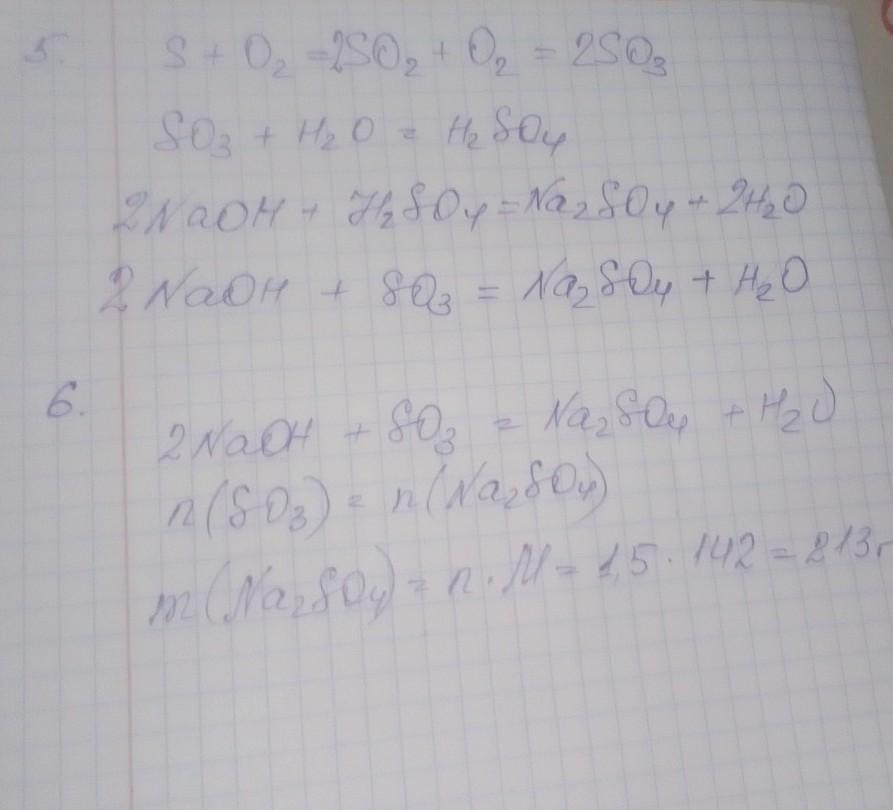 5. S + O₂ = 2SO₂ + O₂ = 2SO₃
SO₃ + H₂O = H₂SO₄
2NaOH + H₂SO₄ = Na₂SO₄ + 2H₂O
2NaOH + SO₃ = Na₂SO₄ + H₂O
6. 2NaOH + SO₃ = Na₂SO₄ + H₂O
n(SO₃) = n(Na₂SO₄)
m(Na₂SO₄) = n · M = 1,5 · 142 = 213г